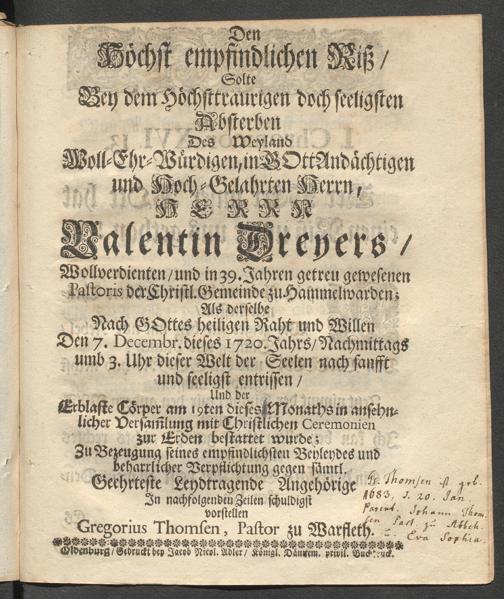 Den
Höchst empfindlichen Riß /
Solte
Bey dem Höchsttraurigen doch seeligsten
Absterben
Des Weyland
Woll-Ehr-Würdigen, in GOtt Andächtigen
und Hoch-Gelahrten Herrn,
HERRN
Valentin Dreyers /
Wollverdienten / und in 39. Jahren getreu gewesenen
Pastoris der Christl. Gemeinde zu Hammelwarden;
Als derselbe
Nach GOttes heiligen Raht und Willen
Den 7. Decembr. dieses 1720. Jahrs / Nachmittags
umb 3. Uhr dieser Welt der Seelen nach sanfft
und seeligst entrissen /
Und der
Erblaste Cörper am 19ten dieses Monaths in ansehn-
licher Versamlung mit Christlichen Ceremonien
zur Erden bestattet wurde;
Zu Bezeugung seines empfindlichsten Beyleydes und
beharrlicher Verpflichtung gegen sämtl.
Geehrteste Leydtragende Angehörige
In nachfolgenden Zeilen schuldigst
vorstellen
Gregorius Thomsen, Pastor zu Warfleth.
Oldenburg / Gedruckt bey Jacob Nicol. Adler / Königl. Dännem. privil. Buchdruck.
Gr. Thomsen ist geb.
1683, d. 20. Jan.
Parent. Johann Thom-
sen Past. zu
Eva Sophia.